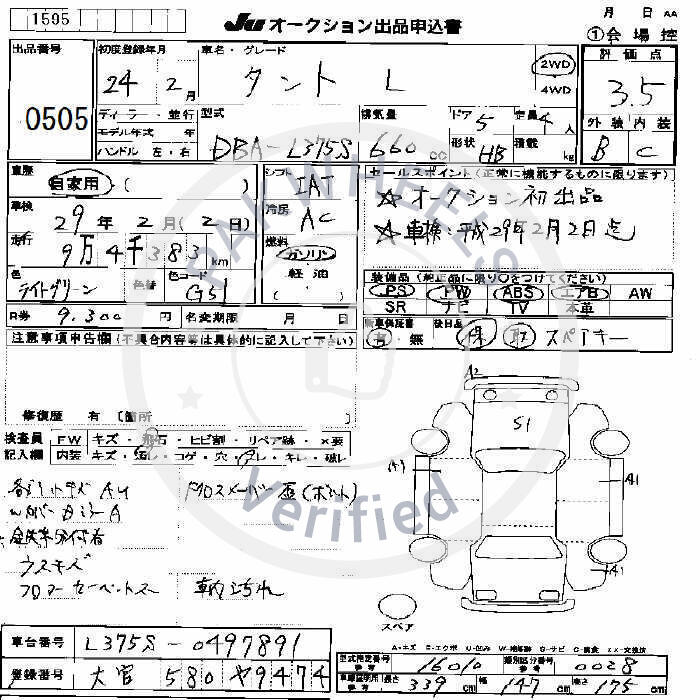 1595
JU オークション出品申込書
月 日 AA
①会場控
出品番号
0505
初度登録年月
24年 2月
車名・グレード
タント L
2WD
4WD
評価点
3.5
外装 内装
B C
ディーラー・並行
モデル年式 年
ハンドル 左・右
型式
DBA-L375S
排気量
660 cc
ドア 5
形状 HB
定員 4人
積載 kg
車歴
自家用 ( )
シフト
IAT
車検
29年 2月 (2日)
冷房
AC
走行
9万4千383 km
燃料
ガソリン
軽油
( )
色
ライトグリーン
色替
色コード
G51
R券 9.300 円
名変期限 月 日
セールスポイント(正常に機能するものに限ります)
☆オークション初出品
☆車検:平成29年2月2日迄
装備品(純正品に限り○をつけてください)
PS PW ABS エアB AW
SR ナビ TV 本革
新車保証書
有・無
後日品
保 取 スペアキー
注意事項申告欄(不具合内容等は具体的に記入して下さい)
修復歴 有 [箇所
検査員
記入欄
FW キズ・飛石・ヒビ割・リペア跡・×要
内装 キズ・汚レ・コゲ・穴・スレ・キレ・破レ
PAK WHEELS
Verified
ウスキズ
フロアーカーペット
車内汚れ
A2
S1
A1
A1
スペア
車台番号 L375S-0497891
登録番号 大宮 580 や 9474
A・キズ E・エクボ U・凹み W・補修跡 S・サビ C・腐食 XX・交換済
型式指定番号
参考
16010
類別区分番号
参考
0028
車検証明用
参考
長さ 339 cm 幅 147 cm 高さ 175 cm